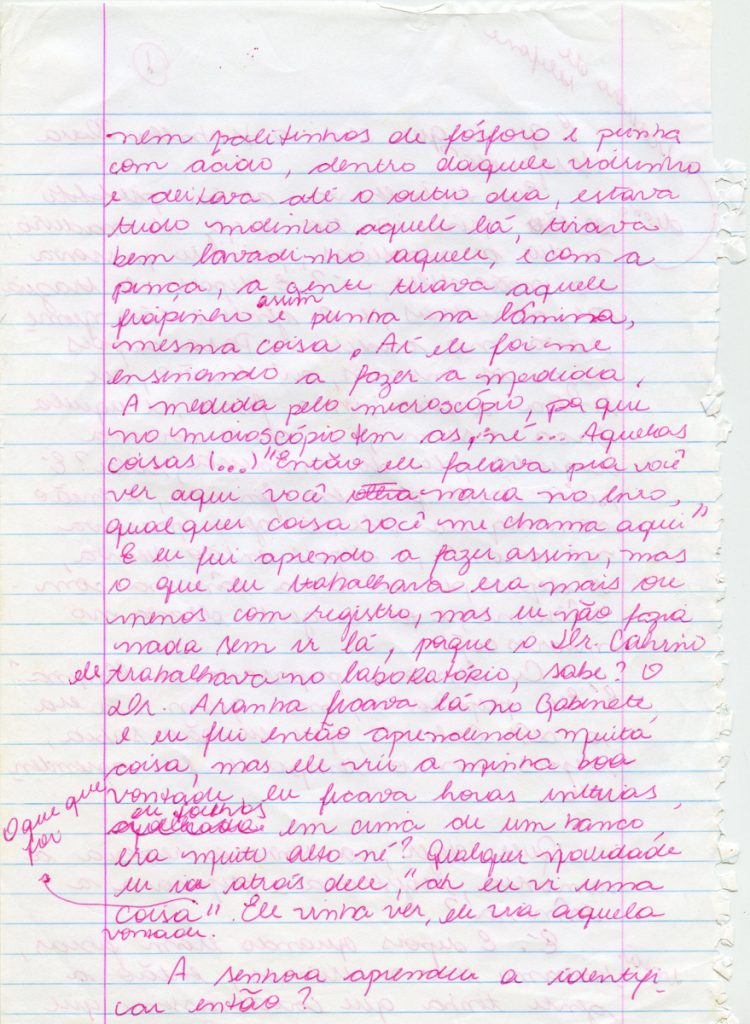 nem palitinhos de fósforo e punha
com ácido, dentro daquele vidrinho
e deitava até o outro dia, estava
tudo molinho aquele lá, tirava
bem lavadinho aquele, e com a
pinça, a gente tirava aquele
fiapinho assim e punha na lâmina,
mesma coisa. Aí ele foi me
ensinando a fazer a medida.
A medida pelo microscópio, pq que
no microscópio tem as, né... Aquelas
coisas (...) "Então ele falava pra você
ver aqui você marca no livro,
qualquer coisa você me chama aqui"
E eu fui aprendo a fazer assim, mas
o que eu trabalhava era mais ou
menos com registro, mas eu não fazia
nada sem ir lá, porque o Dr.
ele trabalhava no laboratório, sabe? O
Dr. Aranha ficava lá no Gabinete
e eu fui então aprendendo muita
coisa, mas ele viu a minha boa
vontade, eu ficava horas inteiras,
em cima de um banco,
era muito alto né? Qualquer novidade
eu ia atrás dele, "ah eu vi uma
coisa" Ele vinha ver, ele via aquela
vontade.
O que que
for
A senhora aprendeu a identifi-
car então?